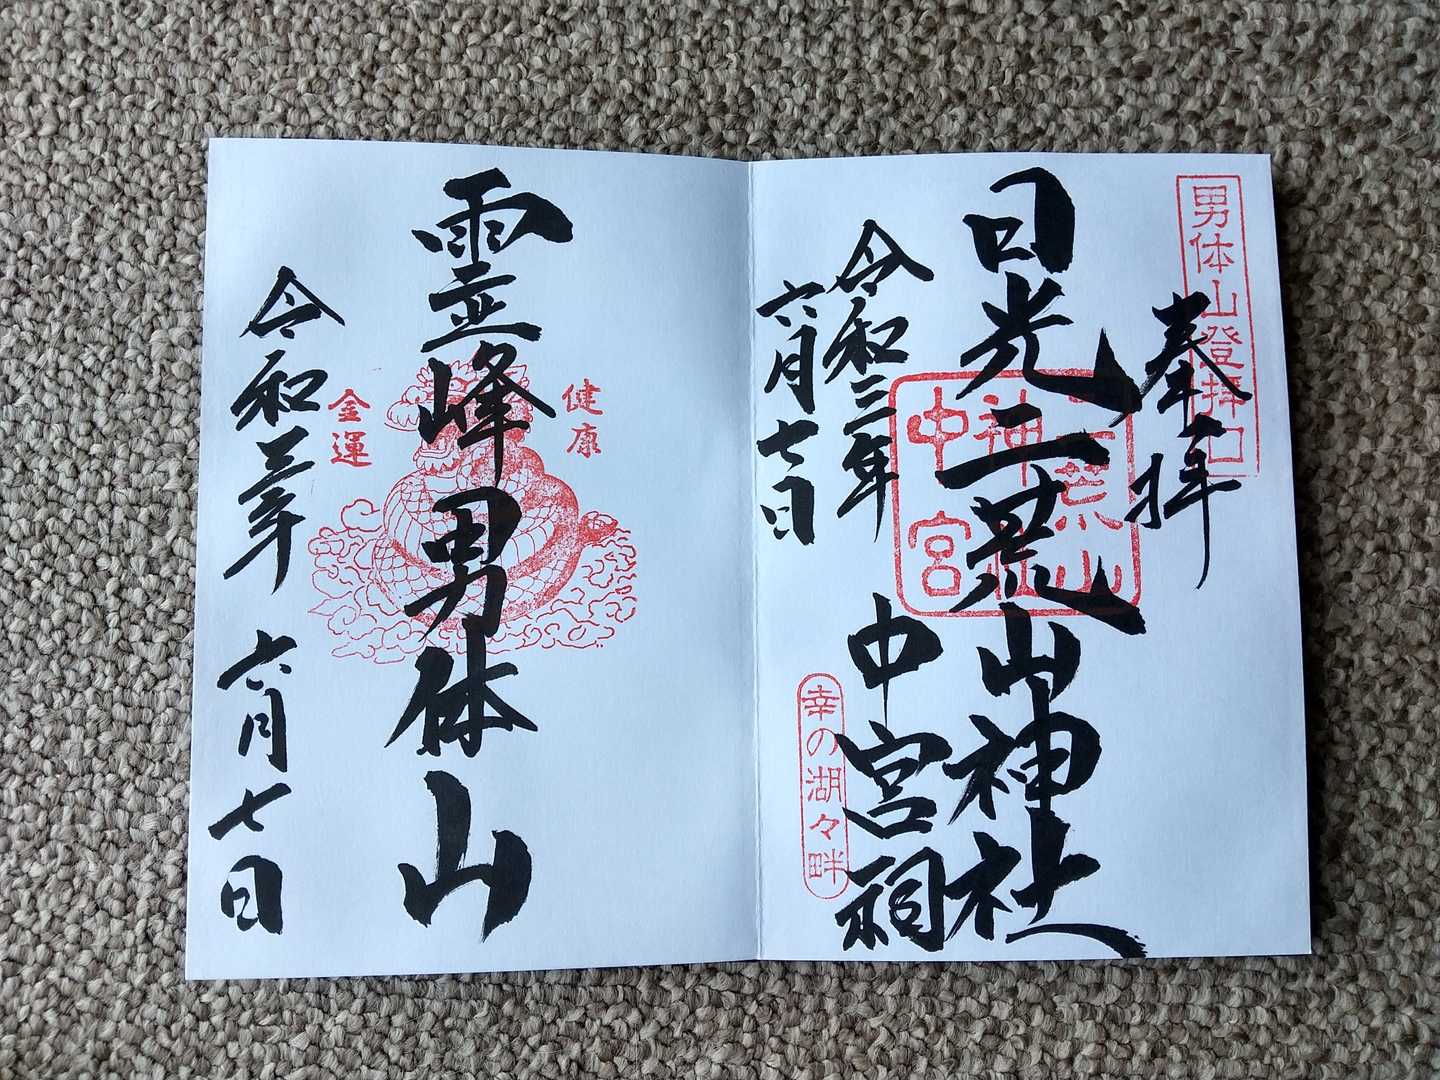 男体山登拝口
奉拝
日光二荒山神社
中宮祠
荒山
神
中宮
幸の湖々畔
令和三年
六月七日
健康
霊峰男体山
金運
令和三年 六月七日